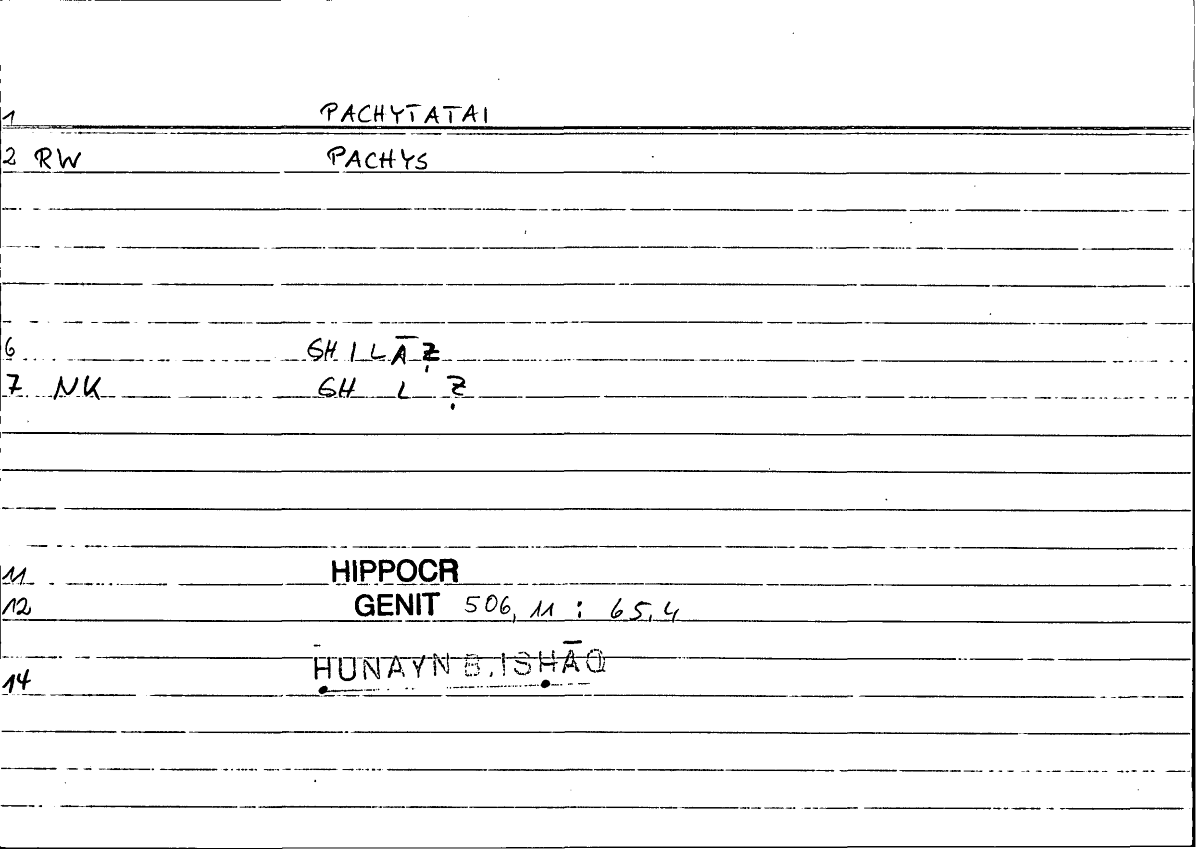 1 PACHYTATAI
2 RW PACHYS
6 GHILĀẒ
7 NK GH L Ẓ
11 HIPPOCR
12 GENIT 506, 11 : 65,4
14 ḤUNAYN B. ISḤĀQ